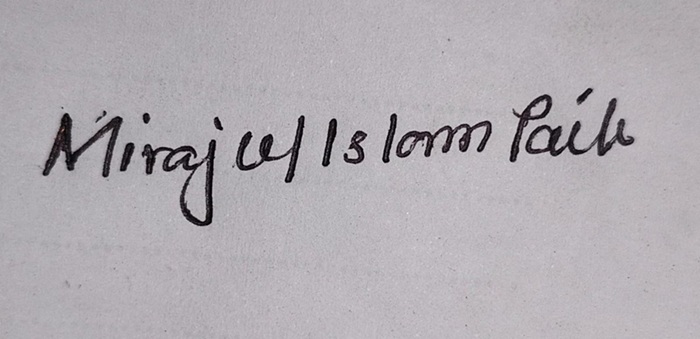 Mirajul Islam Paik